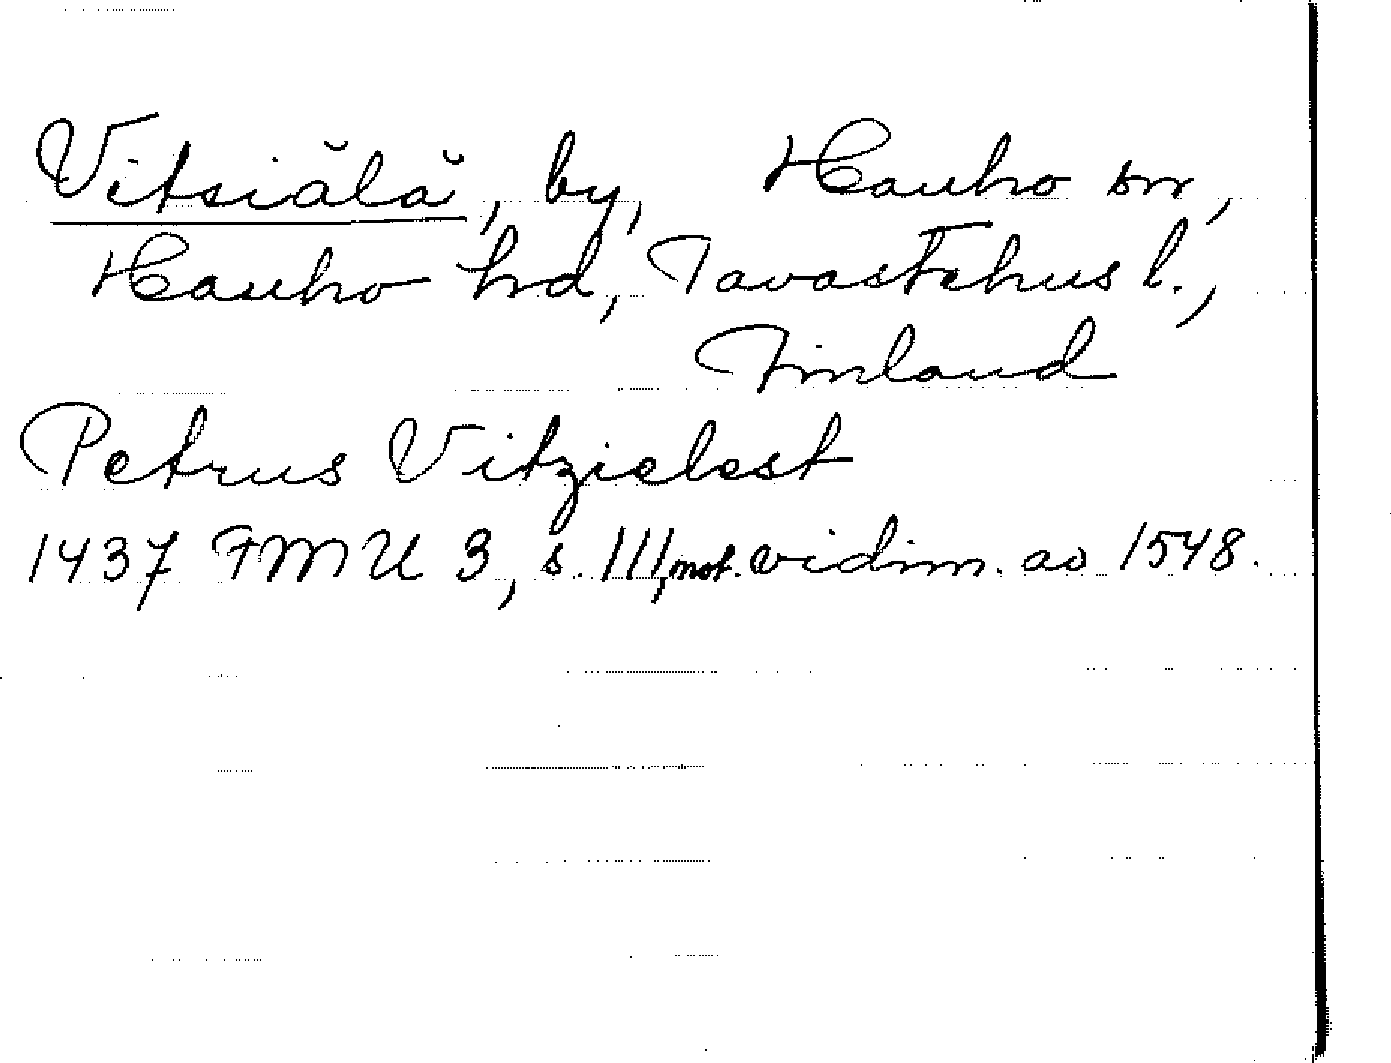 Vitsiälä, by, Hauho sn,
Hauho hd, Tavastehus l.,
Finland
Petrus Vitzielest
1437 FMU 3, s. 111, not. vidim. ao 1548.